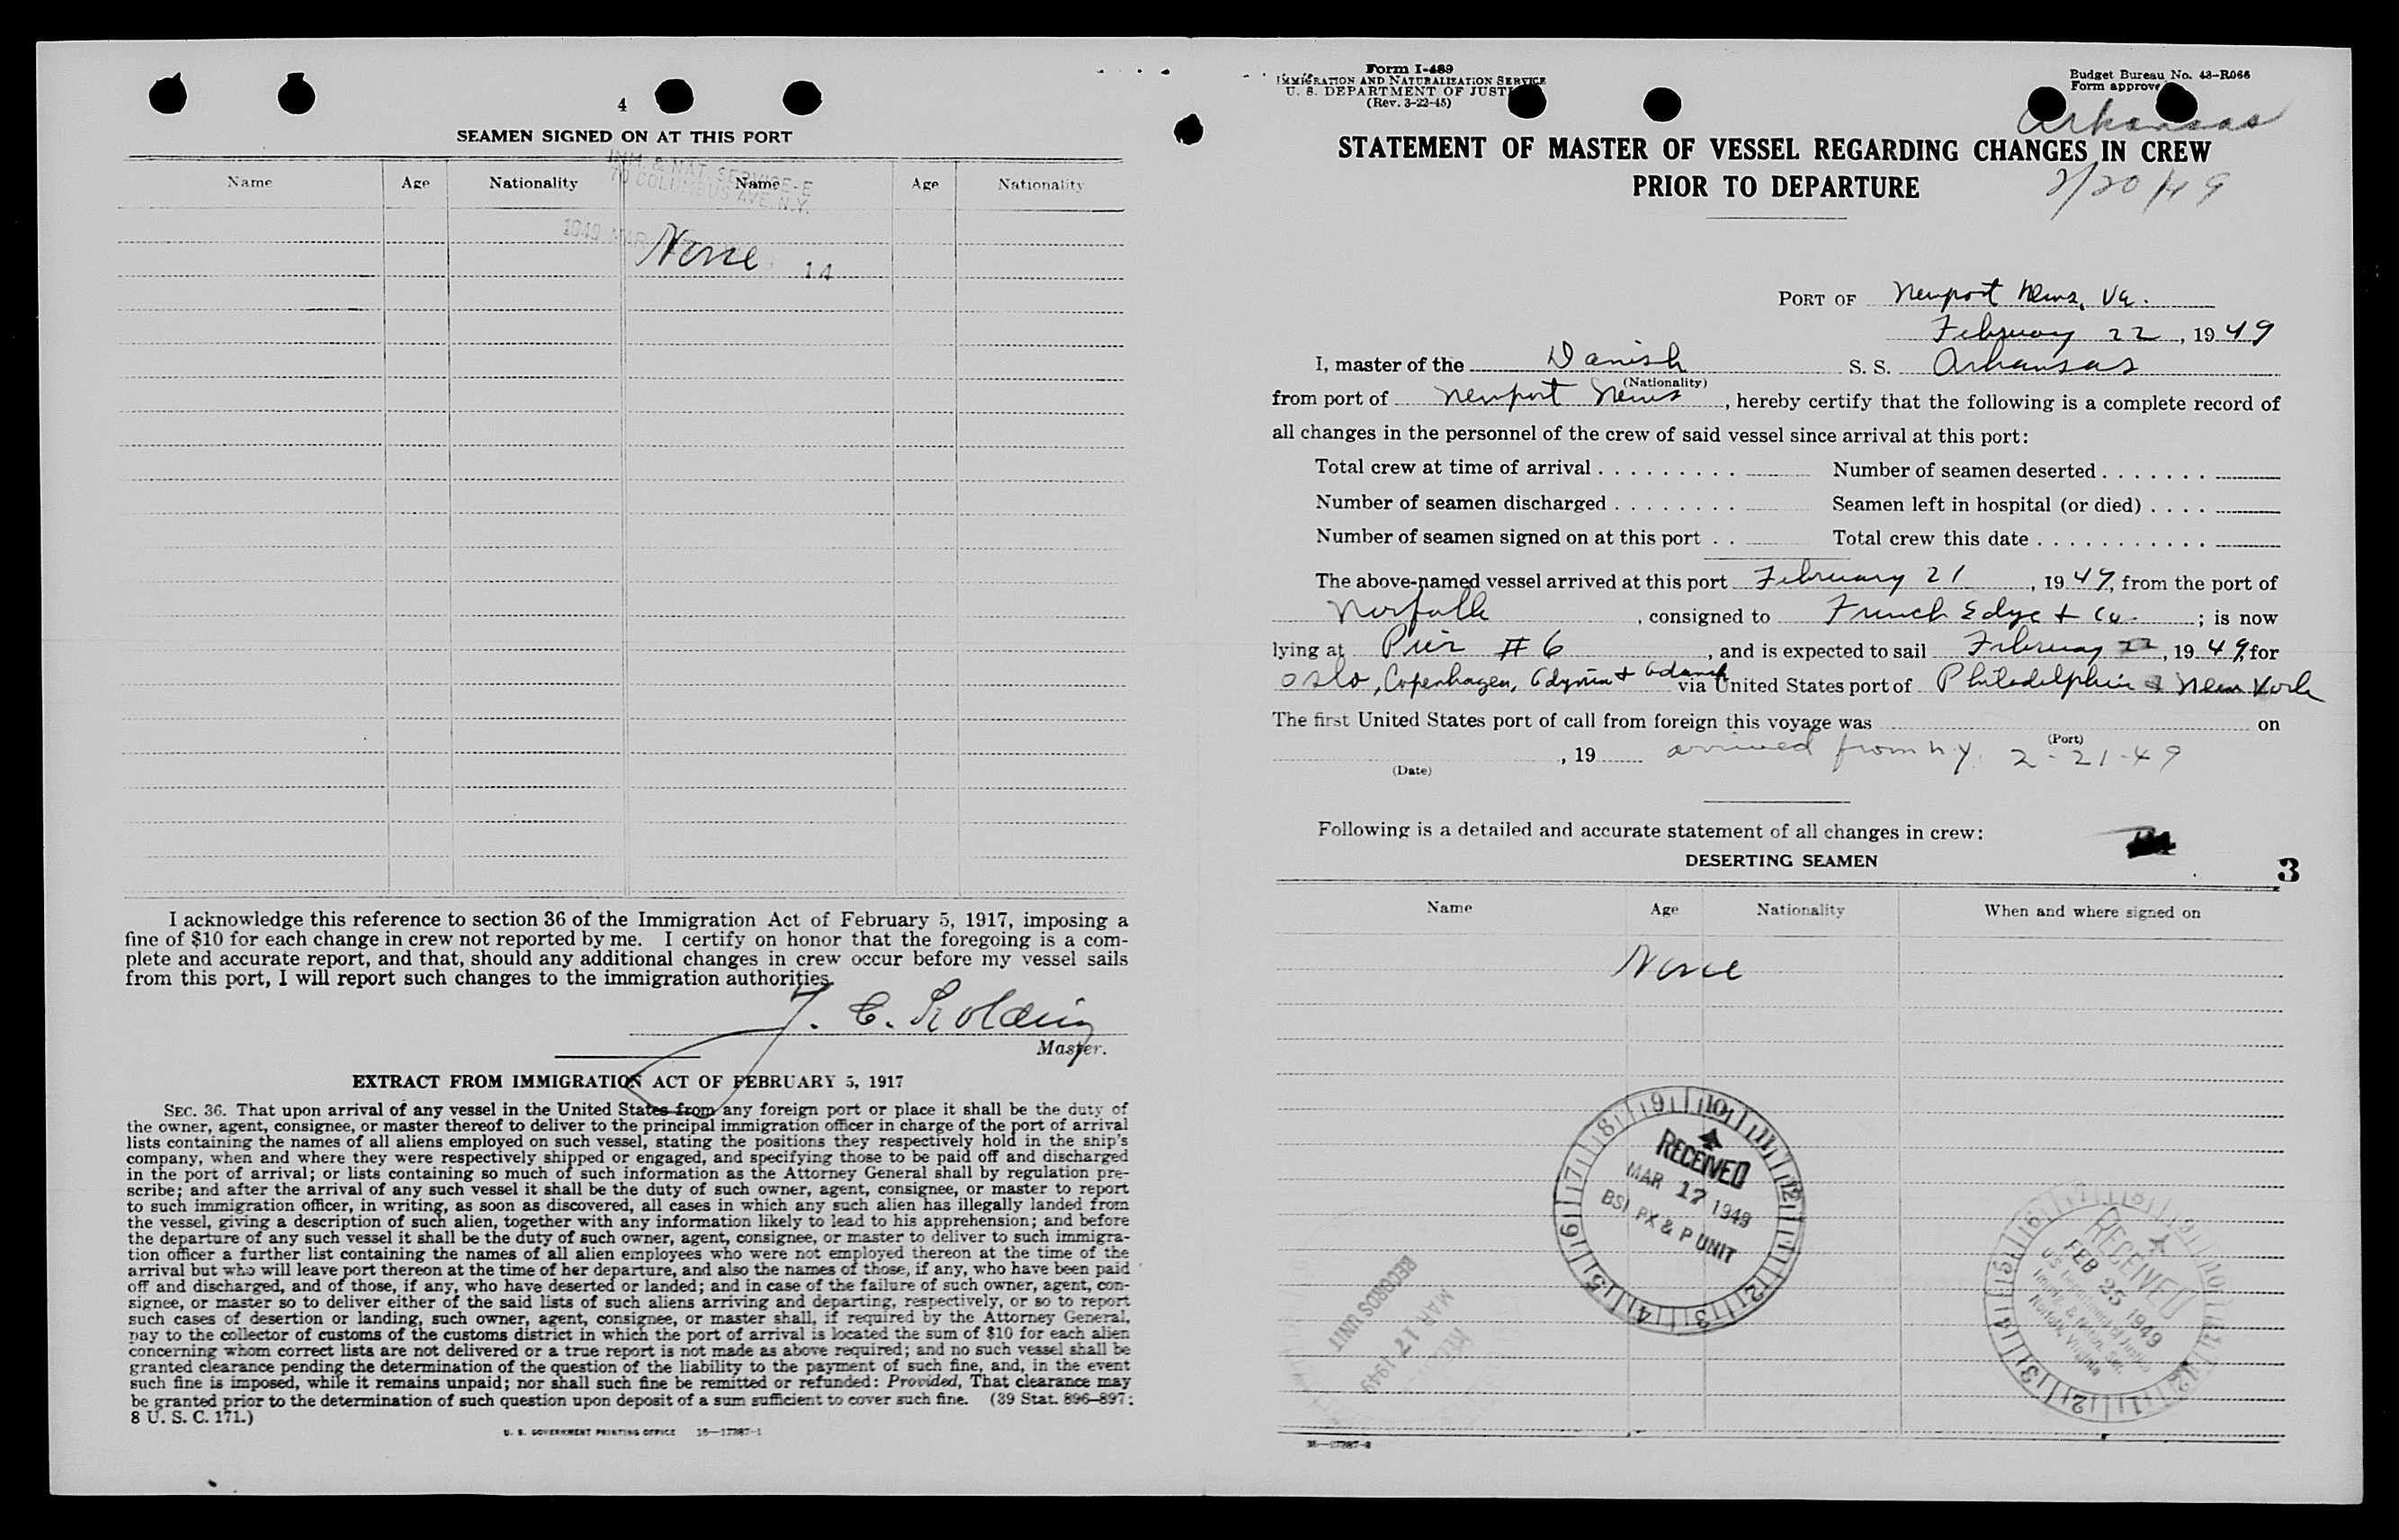 4
SEAMEN SIGNED ON AT THIS PORT
IMM. & NAT. SERVICE-E
70 COLUMBUS AVE. N.Y.
Name Age Nationality Name Age Nationality
1949 MAR
None 14
I acknowledge this reference to section 36 of the Immigration Act of February 5, 1917, imposing a
fine of $10 for each change in crew not reported by me. I certify on honor that the foregoing is a com-
plete and accurate report, and that, should any additional changes in crew occur before my vessel sails
from this port, I will report such changes to the immigration authorities.
J. C. Kolding
Master.
EXTRACT FROM IMMIGRATION ACT OF FEBRUARY 5, 1917
SEC. 36. That upon arrival of any vessel in the United States from any foreign port or place it shall be the duty of
the owner, agent, consignee, or master thereof to deliver to the principal immigration officer in charge of the port of arrival
lists containing the names of all aliens employed on such vessel, stating the positions they respectively hold in the ship's
company, when and where they were respectively shipped or engaged, and specifying those to be paid off and discharged
in the port of arrival; or lists containing so much of such information as the Attorney General shall by regulation pre-
scribe; and after the arrival of any such vessel it shall be the duty of such owner, agent, consignee, or master to report
to such immigration officer, in writing, as soon as discovered, all cases in which any such alien has illegally landed from
the vessel, giving a description of such alien, together with any information likely to lead to his apprehension; and before
the departure of any such vessel it shall be the duty of such owner, agent, consignee, or master to deliver to such immigra-
tion officer a further list containing the names of all alien employees who were not employed thereon at the time of the
arrival but who will leave port thereon at the time of her departure, and also the names of those, if any, who have been paid
off and discharged, and of those, if any, who have deserted or landed; and in case of the failure of such owner, agent, con-
signee, or master so to deliver either of the said lists of such aliens arriving and departing, respectively, or so to report
such cases of desertion or landing, such owner, agent, consignee, or master shall, if required by the Attorney General,
pay to the collector of customs of the customs district in which the port of arrival is located the sum of $10 for each alien
concerning whom correct lists are not delivered or a true report is not made as above required; and no such vessel shall be
granted clearance pending the determination of the question of the liability to the payment of such fine, and, in the event
such fine is imposed, while it remains unpaid; nor shall such fine be remitted or refunded: Provided, That clearance may
be granted prior to the determination of such question upon deposit of a sum sufficient to cover such fine. (39 Stat. 896–897;
8 U. S. C. 171.)
U. S. GOVERNMENT PRINTING OFFICE 16—17387-1
Form I-489
IMMIGRATION AND NATURALIZATION SERVICE
U. S. DEPARTMENT OF JUST
(Rev. 3-22-45)
Budget Bureau No. 43-R066
Form approve
Arkansas
STATEMENT OF MASTER OF VESSEL REGARDING CHANGES IN CREW
PRIOR TO DEPARTURE
2/20/49
PORT OF Newport News, Va.
February 22, 1949
I, master of the Danish S. S. Arkansas
(Nationality)
from port of Newport News, hereby certify that the following is a complete record of
all changes in the personnel of the crew of said vessel since arrival at this port:
Total crew at time of arrival . . . . . . . . . Number of seamen deserted . . . . . . .
Number of seamen discharged . . . . . . . . Seamen left in hospital (or died) . . . .
Number of seamen signed on at this port . . Total crew this date . . . . . . . . . . .
The above-named vessel arrived at this port February 21, 1949, from the port of
Norfolk, consigned to French Edye & Co.; is now
lying at Pier # 6, and is expected to sail February 22, 1949, for
Oslo, Copenhagen, Gdynia & Gdansk via United States port of Philadelphia & New York
The first United States port of call from foreign this voyage was on
(Port)
, 19 arrived from N.Y. 2-21-49
(Date)
Following is a detailed and accurate statement of all changes in crew:
DESERTING SEAMEN
3
Name Age Nationality When and where signed on
None
9 10 11 12 1 2 3 4 5 6 7 8
RECEIVED
MAR 17 1949
BSI PX & P UNIT
RECORDS UNIT
MAR 17 1949
RECEIVED
FEB 25 1949
U. S. Department of Justice
Immig. & Natzn. Ser.
Norfolk, Virginia
16—17387-2